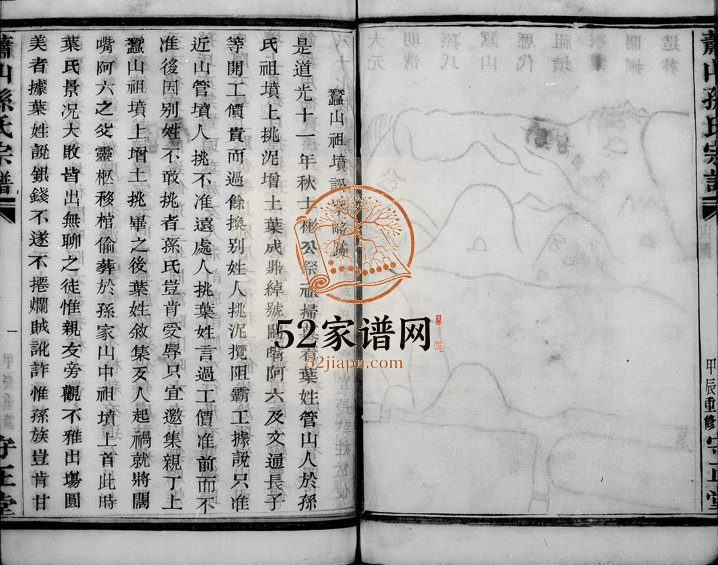 蕭山孫氏宗譜
甲辰重修
守正堂
蠶山祖墳訟案略論
是道光十一年秋士彬公祭祖掃 葉姓管山人於孫
氏祖墳上挑泥增土葉成鼎綽號闊嘴阿六及文通長子
等開工價貴而過餘換別姓人挑泥攬阻霸工據說只准
近山管墳人挑不准遠處人挑葉姓言過工價准前而不
准後因別姓不敢挑者孫氏豈肯受辱只宜邀集親丁上
蠶山祖墳上增土挑畢之後葉姓敘集歹人起禍就將闊
嘴阿六之父靈柩移棺偷葬於孫家山中祖墳上首此時
葉氏景況大敗皆出無聊之徒惟親友旁觀不雅出塲圓
美者據葉姓說銀錢不遂不攇爛賊訛詐惟孫族豈肯甘
蕭山孫氏宗譜
一
甲辰重修
守正堂
52家谱网
52jiapu.com